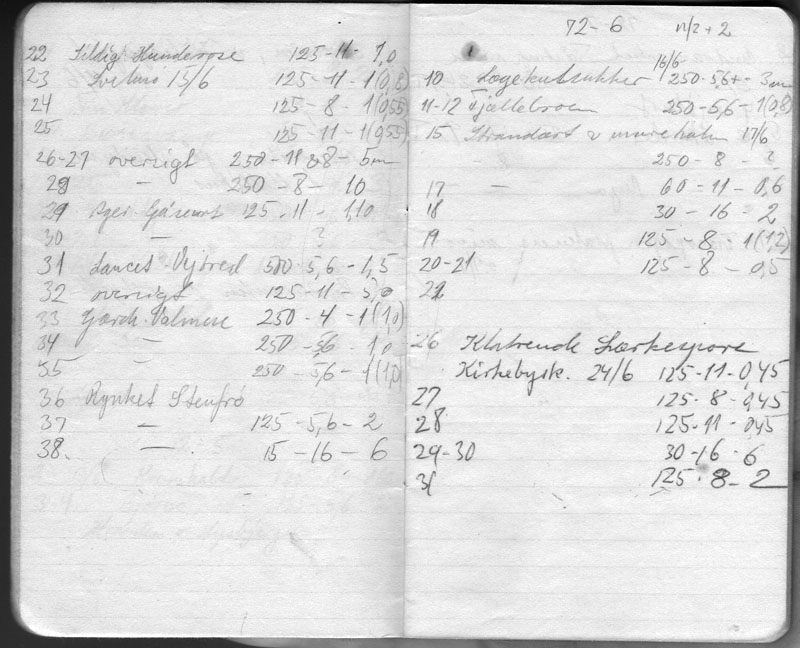 22 Sildig Hunderose 125-11-1,0
23 Svelmø 15/6 125-11-1(0,8)
24 125-8-1(0,55)
25 125-11-1(0,55)
26-27 oversigt 250-11 & 8-5m
28 — 250-8-10
29 Ager Gåsemad 125-11-1,10
30 — ?
31 Lancet-Vejbred 500-5,6-1,5
32 oversigt 125-11-5,0
33 Gærde-Valmue 250-4-1(1,0)
34 — 250-5,6-1,0
35 — 250-5,6-1(1,0)
36 Rynket Stenfrø
37 — 125-5,6-2
38. — 15-16-6
72-6 n/2+2
16/6
10 Lægekulsukker 250-5,6+-3m
11-12 Fjællebroen 250-5,6-1(0,8)
15 Strandært 17/6
250-8-?
17 — — 60-11-0,6
18 30-16-2
19 125-8-1(1,2)
20-21 125-8-0,5
22
26 Klatrende Lærkespore
Kirkebysk. 24/6 125-11-0,45
27 125-8-0,45
28 125-11-0,45
29-30 30-16-6
31 125-8-2